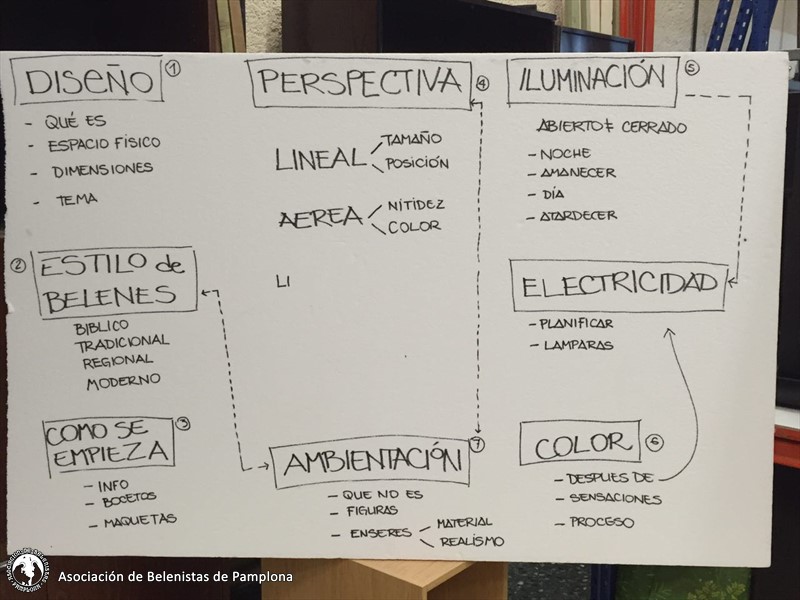 DISEÑO 1
- QUÉ ES
- ESPACIO FÍSICO
- DIMENSIONES
- TEMA
2 ESTILO de
BELENES
BIBLICO
TRADICIONAL
REGIONAL
MODERNO
COMO SE 3
EMPIEZA
- INFO
- BOCETOS
- MAQUETAS
PERSPECTIVA 4
LINEAL
TAMAÑO
POSICIÓN
AEREA
NITIDEZ
COLOR
LI
AMBIENTACIÓN 7
- QUE NO ES
- FIGURAS
- ENSERES
MATERIAL
REALÍSMO
ILUMINACIÓN 5
ABIERTO ≠ CERRADO
- NOCHE
- AMANECER
- DÍA
- ATARDECER
ELECTRICIDAD
- PLANIFICAR
- LAMPARAS
COLOR 6
- DESPUES DE
- SENSACIONES
- PROCESO
Asociación de Belenistas de Pamplona